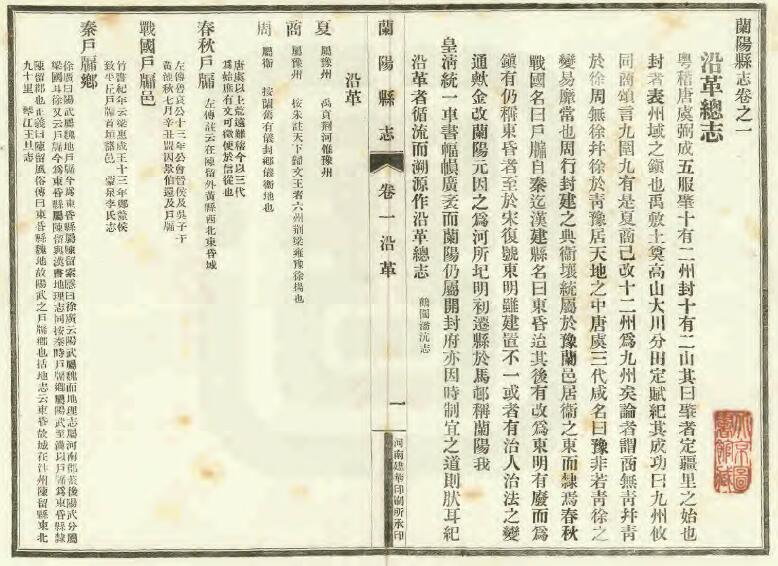 蘭陽縣志卷之一
沿革總志
粤稽唐虞弼成五服肇十有二州封十有二山其曰肇者定疆里之始也
封者表州域之鎮也禹敷土奠高山大川分田定賦紀其成功曰九州攸
同商頌言九圍九有是夏商已改十二州爲九州矣論者謂商無青幷青
於徐周無徐幷徐於青豫居天地之中唐虞三代咸名曰豫非若青徐之
變易靡常也周行封建之典衞壤統屬於豫蘭邑居衞之東而隸焉春秋
戰國名曰戸牖自秦迄漢建縣名曰東昏迨其後有改爲東明有廢而爲
鎮有仍稱東昏者至於宋復號東明雖建置不一或者有治人治法之變
通歟金改蘭陽元因之爲河所圮明初遷縣於馬邨稱蘭陽我
皇淸統一車書幅幀廣袤而蘭陽仍屬開封府亦因時制宜之道則肰耳紀
沿革者循流而溯源作沿革總志 鶴閒潘沆志
蘭陽縣志
卷一沿革
一
河南建華印刷所承印
沿革
夏 屬豫州 禹貢荆河惟豫州
商 屬豫州 按朱註天下歸文王者六州荆梁雍豫徐揚也
周 屬衞 按蘭舊有儀封鄉儀衞地也
唐虞以上荒遠難稽今以三代
爲始庶有文可徵便於信從也
春秋戸牖 左傳註云在陳留外黃縣西北東昏城
左傳魯哀公十三年公會晉侯及吳子于
黃池秋七月辛丑盟囚景伯還及戸牖
戰國戸牖邑
竹書紀年云梁惠成王十三年鄭釐侯
致平丘戸牖首垣諸邑 蒙泉李氏志
秦戸牖鄉
徐廣曰陽武魏地戸牖今爲東昏縣屬陳留索隱曰徐廣云陽武屬魏而地理志屬河南郡蓋後陽武分屬
梁國耳徐又云戸牖今爲東昏縣屬陳留與漢書地理志同按秦時戸牖鄉屬陽武至漢以戸牖爲東昏縣隸
陳留郡也正義曰陳留風俗傳曰東昏縣魏地故陽武之戸牖鄉也括地志云東昏故城在汴州陳留縣東北
九十里 琴江王旦志